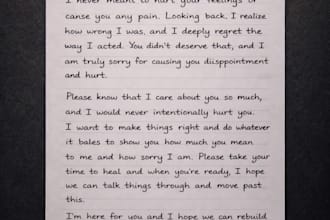 I never meant to hurt your feelings or
canse you any pain. Looking back, I realize
how wrong I was, and I deeply regret the
way I acted. You didn't deserve that, and I
am truly sorry for causing you diisppointment
and hurt.
Please know that I care about you so much,
and I would never intentionally hurt you.
I want to make things right and do whatever
it bales to show you how much you mean
to me and how sorry I am. Please take your
time to heal and when you're ready, I hope
we can talk things through and move past
this.
I'm here for you and I hope we can rebuild